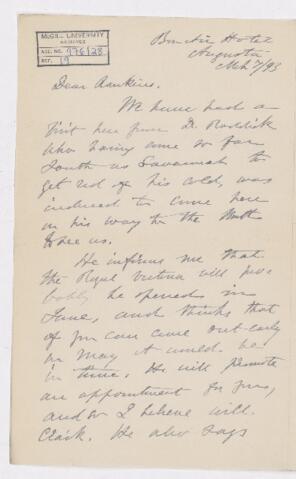 McGILL UNIVERSITY
ARCHIVES
ACC. NO. 976/28
REF. 19
Hotel
Augusta
Mch 7/93
Dear
We have had a
visit here from Dr. Roddick
who having come so far
South as Savannah to
get rid of his cold, was
induced to come here
on his way to the North
to see us.
He informs me that
the Royal Victoria will pro-
bably be opened in
June, and thinks that
if you can come out early
in May it would be
in time. He will promote
an appointment for you,
and so I believe will
Clark. He also says